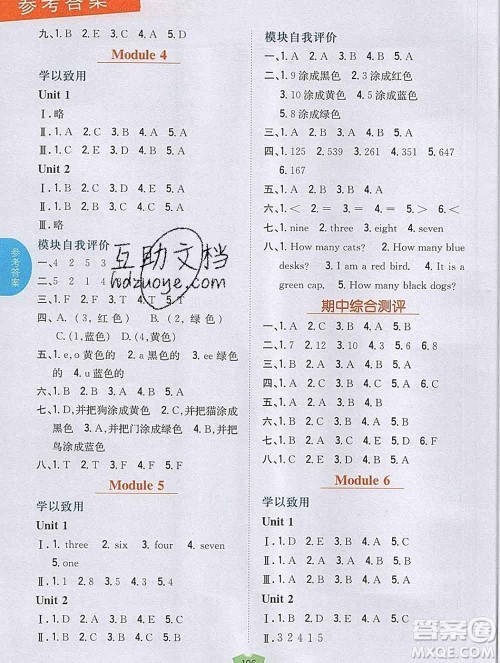 参考答案
九、1.B 2.A 3.C 4.A 5.D
Module 4
学以致用
Unit 1
Ⅰ.略
Ⅱ.1.A 2.C 3.B 4.A 5.A
Unit 2
Ⅰ.1.C 2.B 3.A 4.C 5.A
Ⅱ.1.B 2.C 3.A 4.A 5.B
Ⅲ.略
模块自我评价
一、4 2 5 3
二、5 2 1 4
三、1.F 2.F
四、A.(3,红色) B.(2,绿色)
C.(1,蓝色)
五、1.e,o 2.a 3.ee
4.a
六、1.B 2.A 3.C 4.B 5.A
七、1.D,并把狗涂成黄色 2.C,并把猫涂成
黑色 3.A,并把门涂成绿色 4.B,并把
鸟涂成蓝色
八、1.T 2.T 3.F 4.F 5.F
Module 5
学以致用
Unit 1
Ⅰ.1.three 2.six 3.four 4.seven
5.one
Ⅱ.1.1 2.8 3.5 4.4 5.7
Unit 2
Ⅰ.1.C 2.B 3.A 4.A 5.B
Ⅱ.1.B 2.A 3.A 4.B 5.A
模块自我评价
一、1.A 2.C 3.B 4.A 5.A
二、1.9涂成黑色 2.4涂成红色
3.10涂成黄色 4.5涂成蓝色
5.8涂成绿色
三、1.B 2.C 3.A 4.C 5.A
四、1.125 2.539 3.261 4.647
6.167
五、1.B 2.A 3.B 4.A 5.A
六、1.< 2.> 3.= 4.< 5.<
七、1.nine 2.three 3.eight 4.seven
八、1.How many cats? 2.How many blue
desks? 3.I am a bird. 4.I am red.
5.How many black dogs?
期中综合测评
一、1.B 2.A 3.C 4.B 5.A
二、1.9 2.7 3.6 4.8 5.2
三、2 3 1 5 4
四、1.C 2.E 3.D 4.A 5.B
五、1.A 2.B 3.C 4.A 5.C
六、1.B 2.A 3.A 4.B 5.A
七、1.B 2.D 3.A 4.E 5.C
八、1.B 2.A 3.B 4.B 5.A
Module 6
学以致用
Unit 1
Ⅰ.1.B 2.E 3.A 4.D 5.C
Ⅱ.1.B 2.A 3.B 4.A 5.B
Unit 2
Ⅰ.1.A 2.C 3.B 4.A 5.C
Ⅱ.3 2 4 1 5
参考答案
106
互助文档
hdzuoye.com
答案圈
MXQE.COM